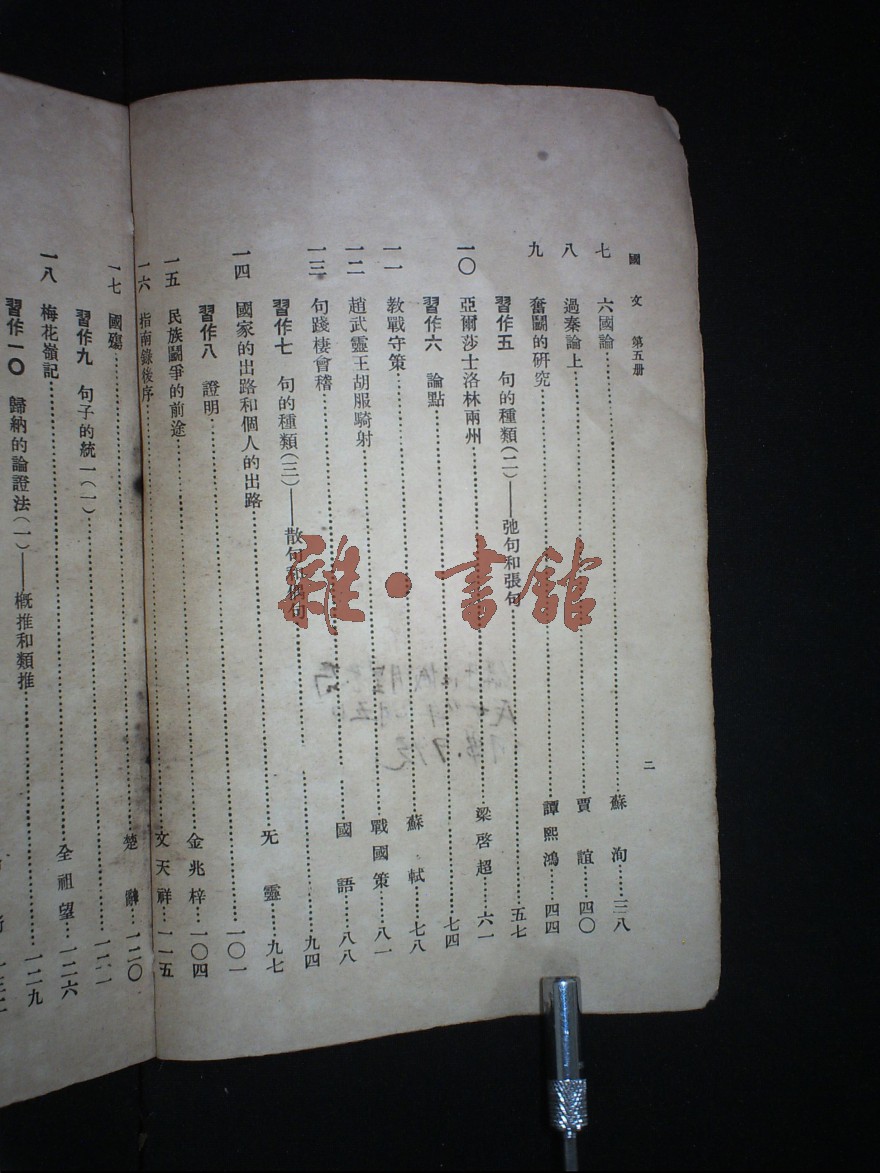 國文 第五册
二
七 六國論……蘇洵……三八
八 過秦論上……賈誼……四〇
九 奮鬭的研究……譚熙鴻……四四
習作五 句的種類(二)——弛句和張句……五七
一〇 亞爾莎士洛林兩州……梁啓超……六一
習作六 論點……七四
一一 教戰守策……蘇軾……七八
一二 趙武靈王胡服騎射……戰國策……八一
一三 句踐棲會稽……國語……八八
習作七 句的種類(三)——散句和偶句……九四
一四 國家的出路和個人的出路……无靈……九七
習作八 證明……一〇一
一五 民族鬭爭的前途……金兆梓……一〇四
一六 指南錄後序……文天祥……一一五
一七 國殤……楚辭……一二〇
習作九 句子的統一(一)……一二一
一八 梅花嶺記……全祖望……一二六
習作一〇 歸納的論證法(一)——概推和類推……一二九
雜·書館